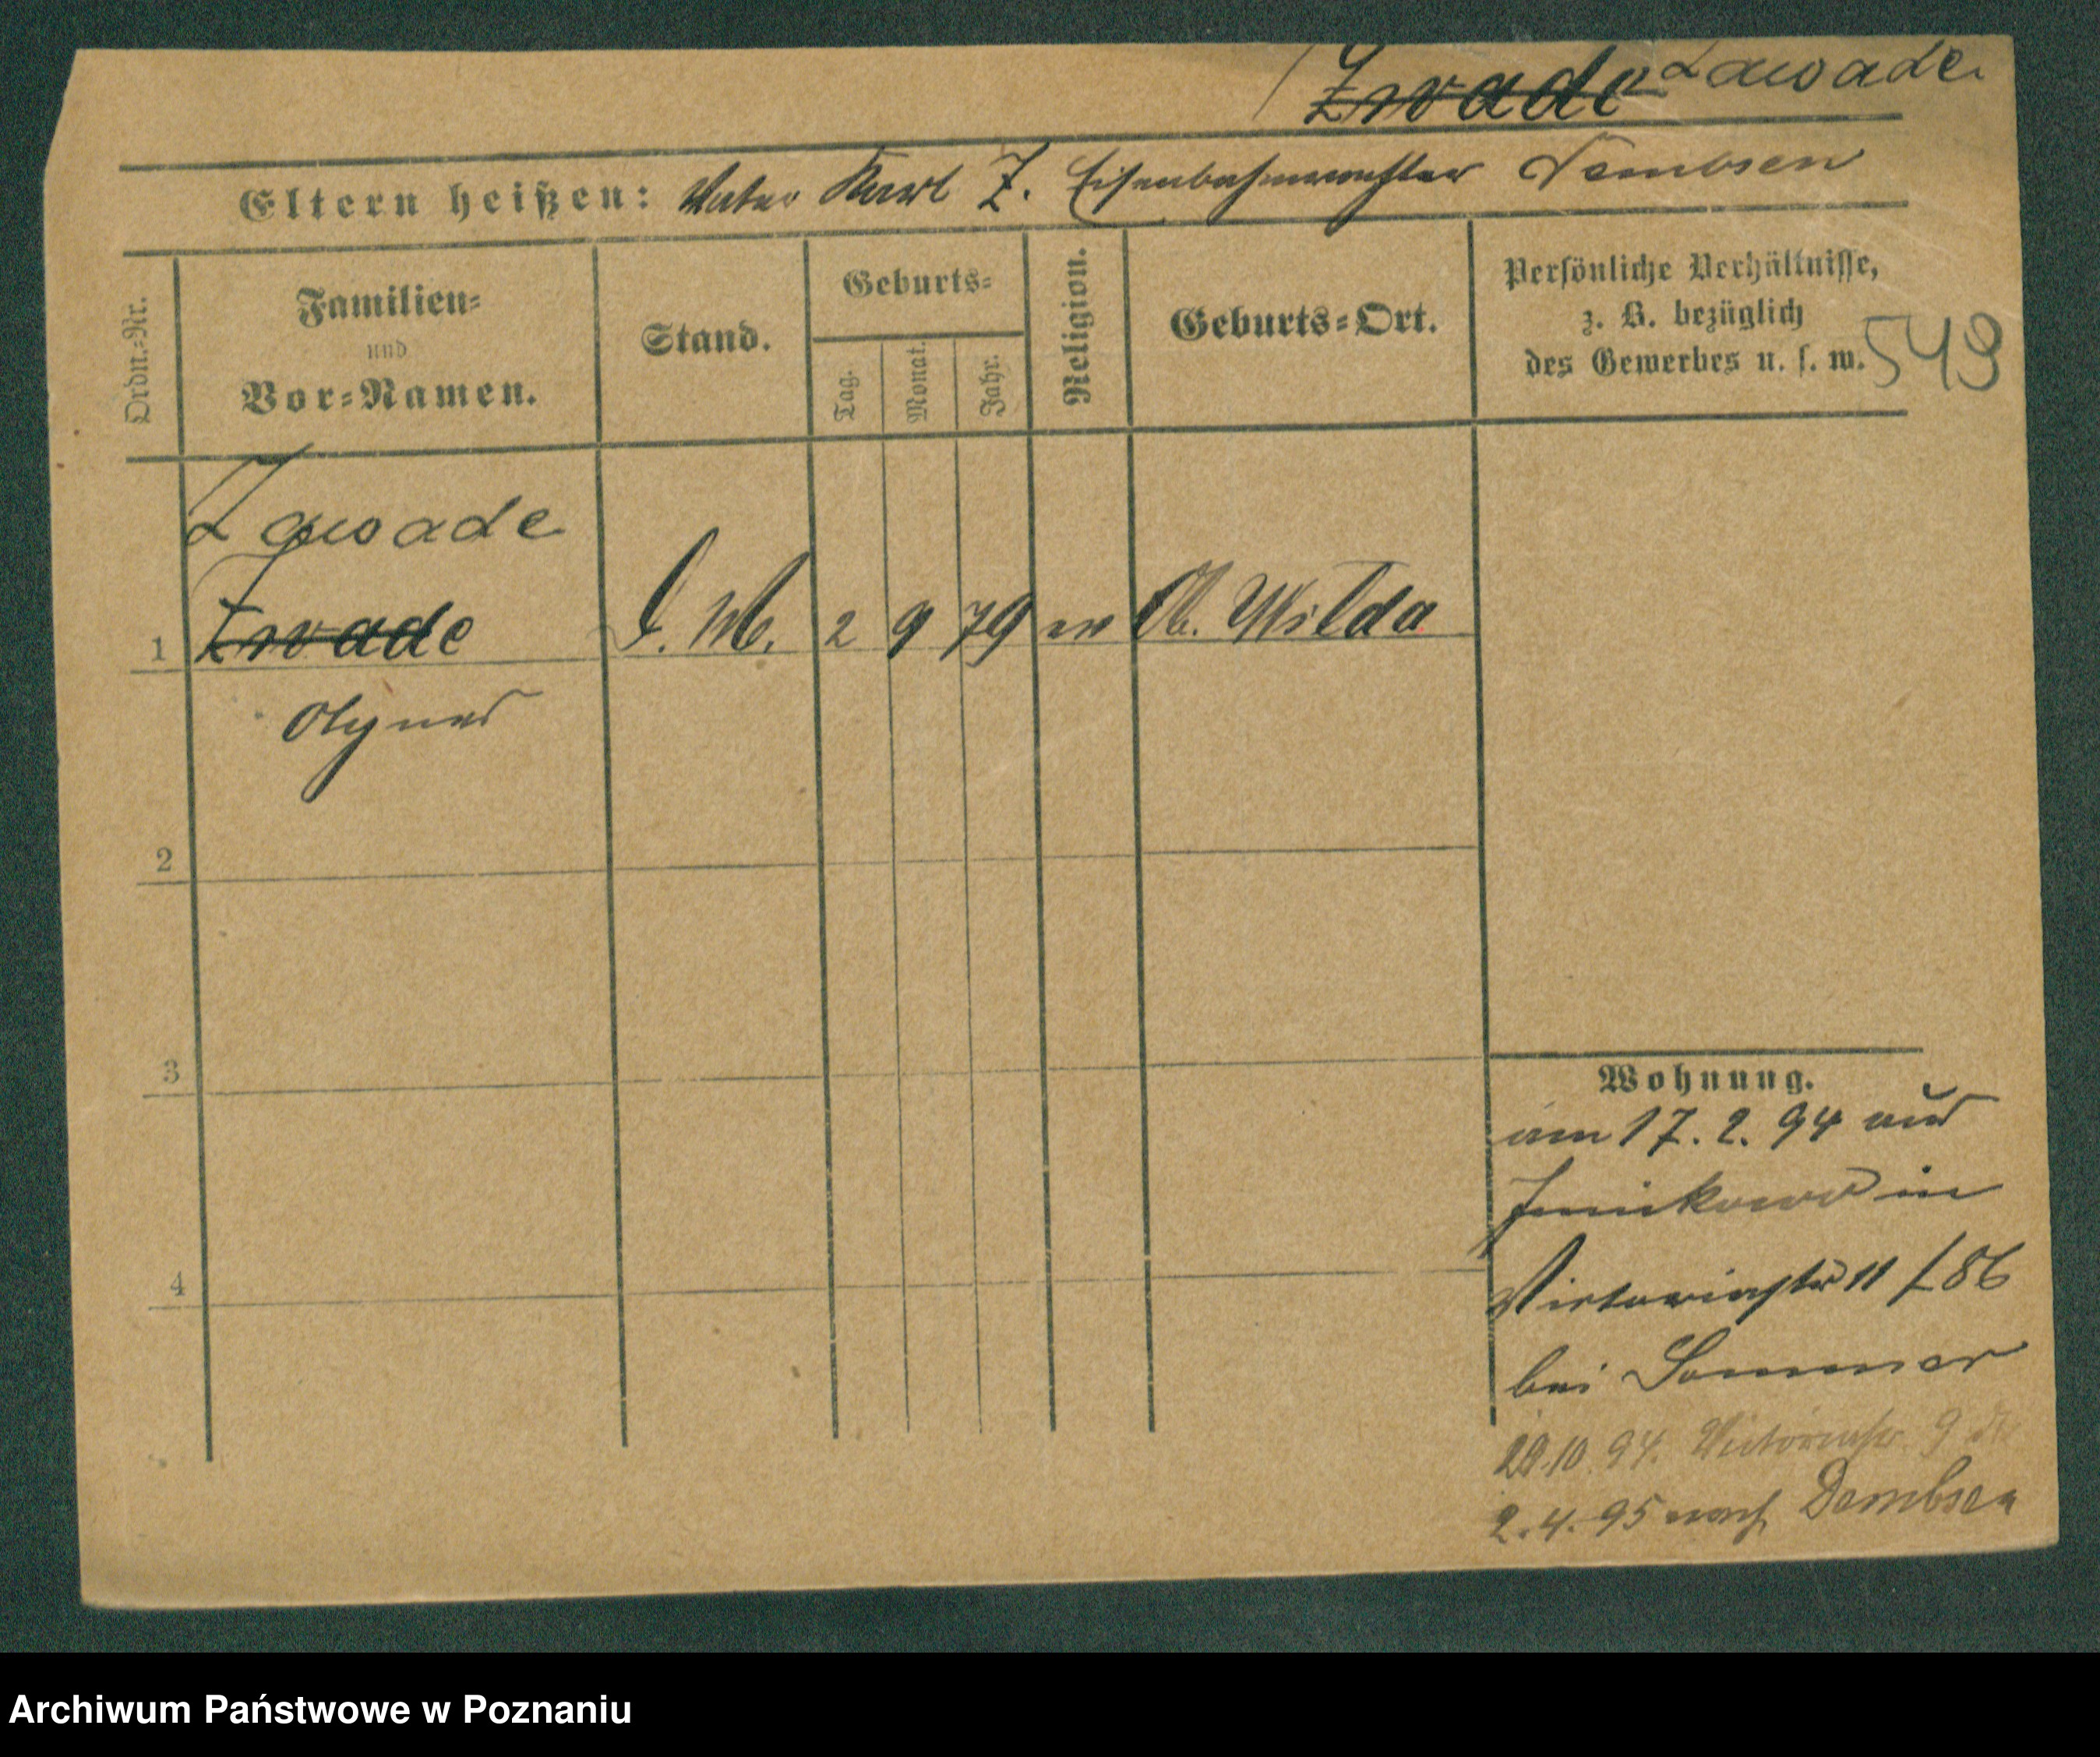 Zwade Zawade
Eltern heißen: Vater Karl Z. Eisenbahnwächter Dembsen
Ordn.-Nr.
Familien-
und
Vor-Namen.
Stand.
Geburts-
Tag.
Monat.
Jahr.
Religion.
Geburts-Ort.
Persönliche Verhältnisse,
z. B. bezüglich
des Gewerbes u. s. w.
549
Zawade
1 Zwade D. M. 2 9 79 ev Ob. Wilda
Agnes
2
3
4
Wohnung.
am 17. 2. 94 aus
Junikowo in
Victoriastr 11 / 86
bei Sommer
29.10 94. Victoriastr. 9
2. 4. 95 nach Dembsen
Archiwum Państwowe w Poznaniu